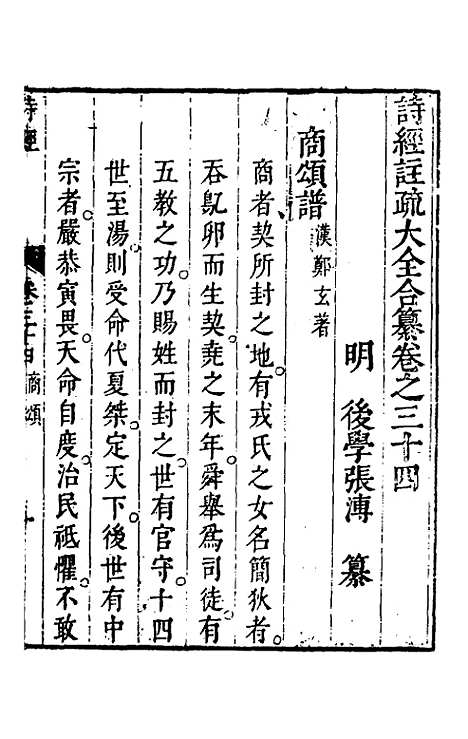 詩經註疏大全合纂卷之三十四
明 後學張溥 纂
商頌譜 漢鄭玄著
商者契所封之地。有戎氏之女名簡狄者。
吞鳦卵而生契。堯之末年。舜舉爲司徒。有
五教之功。乃賜姓而封之。世有官守。十四
世至湯。則受命代夏桀。定天下。後世有中
宗者。嚴恭寅畏。天命自度。治民祗懼。不敢
詩經 卷三十四 商頌